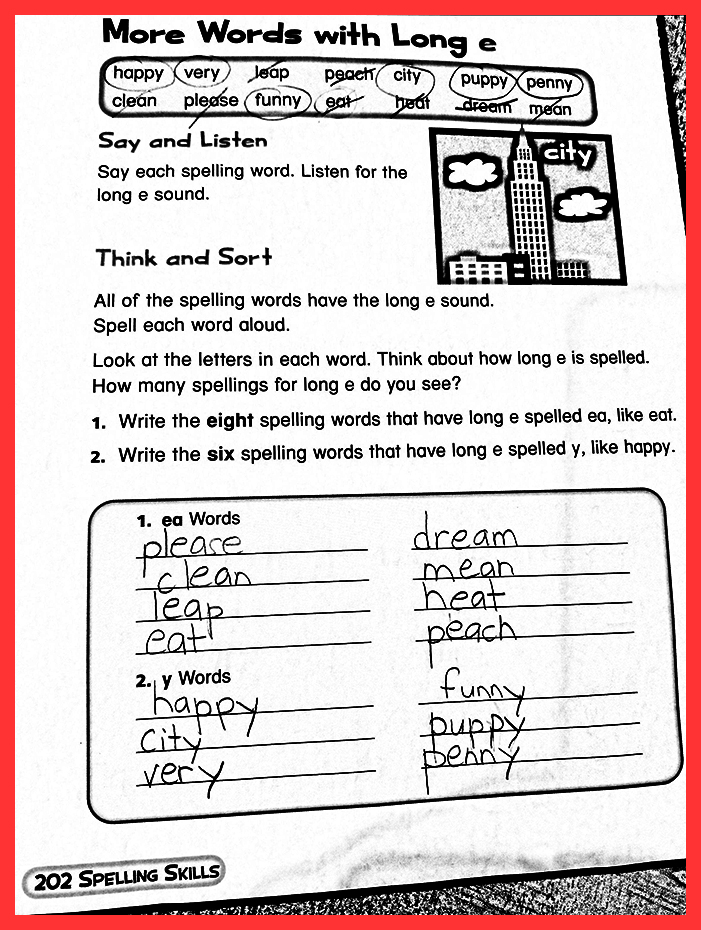 More Words with Long e
happy very leap peach city puppy penny
clean please funny eat heat dream mean
Say and Listen
Say each spelling word. Listen for the
long e sound.
city
Think and Sort
All of the spelling words have the long e sound.
Spell each word aloud.
Look at the letters in each word. Think about how long e is spelled.
How many spellings for long e do you see?
1. Write the eight spelling words that have long e spelled ea, like eat.
2. Write the six spelling words that have long e spelled y, like happy.
1. ea Words
please dream
clean mean
leap heat
eat peach
2. y Words
happy funny
city puppy
very penny
202 SPELLING SKILLS